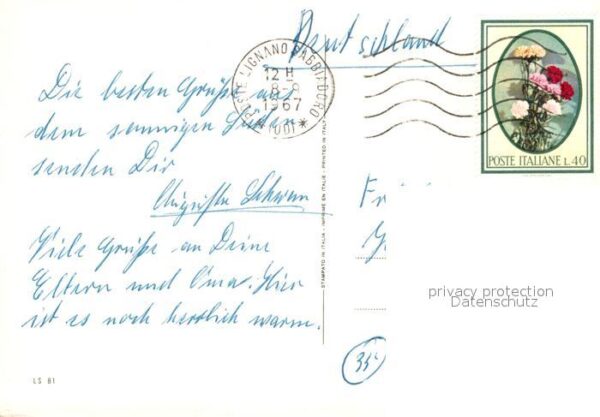 Deutschland
POSTE LIGNANO SABBIADORO
12 H
8-8
1967
* (UD) *
POSTE ITALIANE L. 40
Die besten Grüße aus
dem sonnigen Süden
senden Dir
Auguste Schwan
Viele Grüße an Deine
Eltern und Oma. Hier
ist es noch herrlich warm.
STAMPATO IN ITALIA - IMPRIMÉ EN ITALIE - PRINTED IN ITALY
Fr
privacy protection
Datenschutz
LS 81